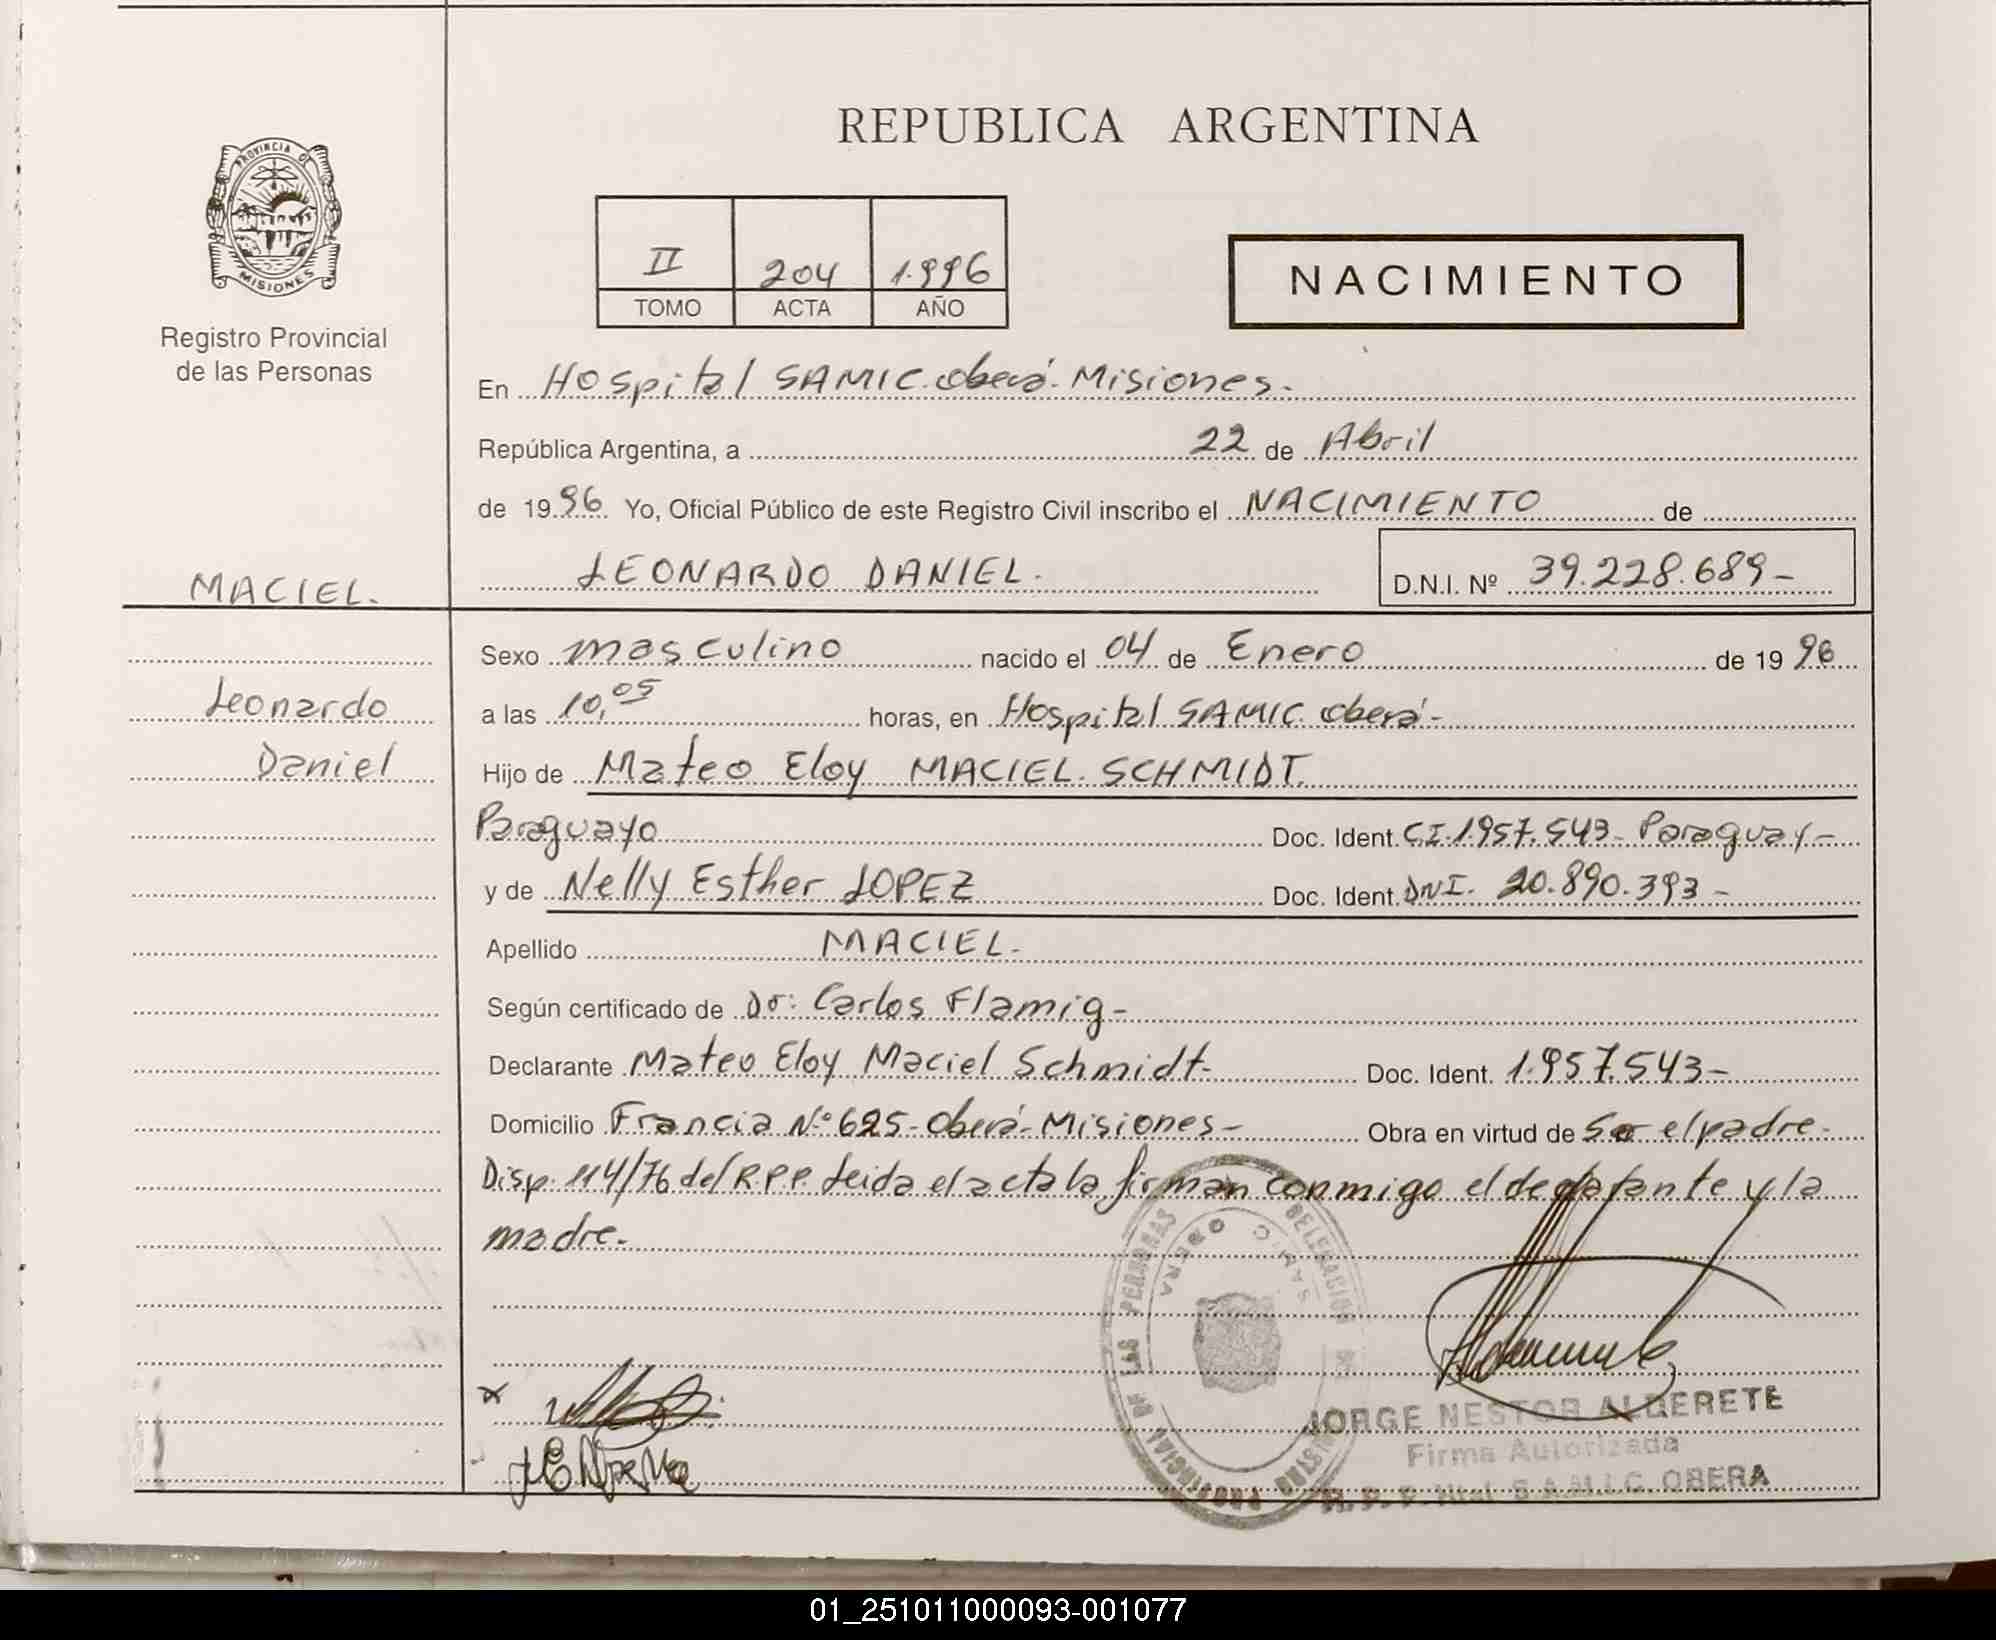 REPUBLICA ARGENTINA
PROVINCIA DE
MISIONES
Registro Provincial
de las Personas
II 204 1.996
TOMO ACTA AÑO
NACIMIENTO
En Hospital SAMIC. Oberá. Misiones.
República Argentina, a 22 de Abril
de 1996. Yo, Oficial Público de este Registro Civil inscribo el NACIMIENTO de
LEONARDO DANIEL.
D.N.I. Nº 39.228.689-
MACIEL.
Leonardo
Daniel
Sexo masculino nacido el 04 de Enero de 1996
a las 10,05 horas, en Hospital SAMIC. Oberá-
Hijo de Mateo Eloy MACIEL. SCHMIDT.
Paraguayo Doc. Ident. C.I. 1.957.543- Paraguay-
y de Nelly Esther LOPEZ Doc. Ident. DNI. 20.890.393-
Apellido MACIEL.
Según certificado de Dr: Carlos Flamig-
Declarante Mateo Eloy Maciel Schmidt- Doc. Ident. 1.957.543-
Domicilio Francia Nº 625- Oberá- Misiones- Obra en virtud de Ser el padre-
Disp. 114/76 del R.P.P. Leida el acta la firman conmigo el declarante y la
madre.
REGISTRO PROVINCIAL DE LAS PERSONAS DELEGACION
SAMIC OBERA
JORGE NESTOR ALDERETE
Firma Autorizada
R. P. P. Htal. S.A.M.I.C. OBERA
01_251011000093-001077